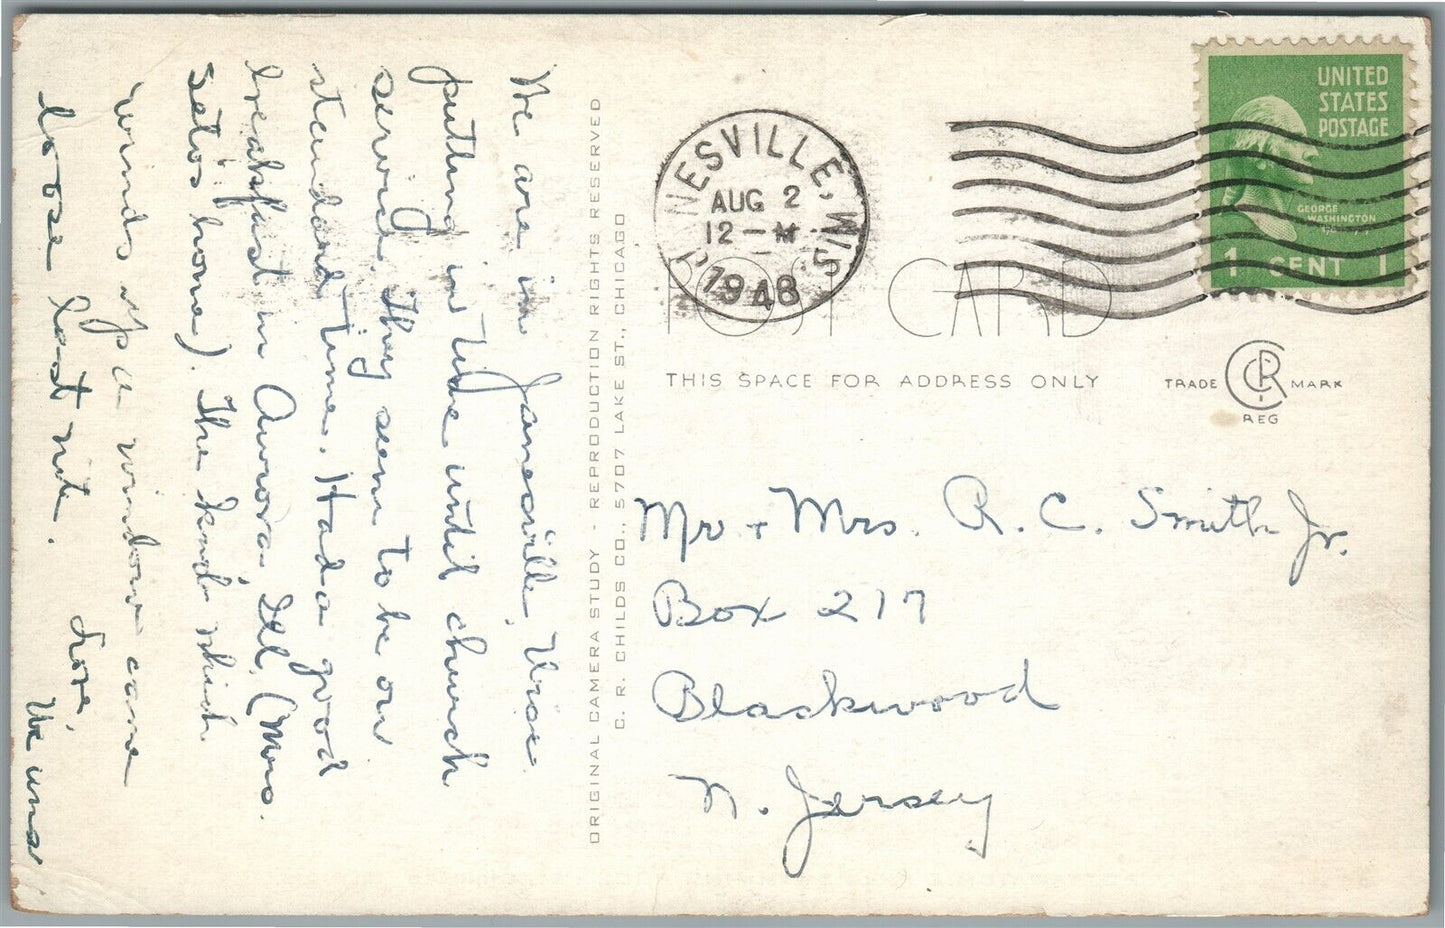 We are in Janesville, Wisc.
putting in time until church
service. They seem to be on
standard time. Had a good
breakfast in Aurora, Ill. (Mrs.
Seto's home). The kind which
winds up a window came
loose last nite.
Love,
We uns
ORIGINAL CAMERA STUDY - REPRODUCTION RIGHTS RESERVED
C. R. CHILDS CO., 5707 LAKE ST., CHICAGO
JANESVILLE, WIS.
AUG 2
12 - M
1948
UNITED
STATES
POSTAGE
GEORGE
WASHINGTON
1 CENT 1
POST CARD
THIS SPACE FOR ADDRESS ONLY
TRADE CRC MARK
REG
Mr + Mrs. R. C. Smith Jr.
Box 217
Blackwood
N. Jersey